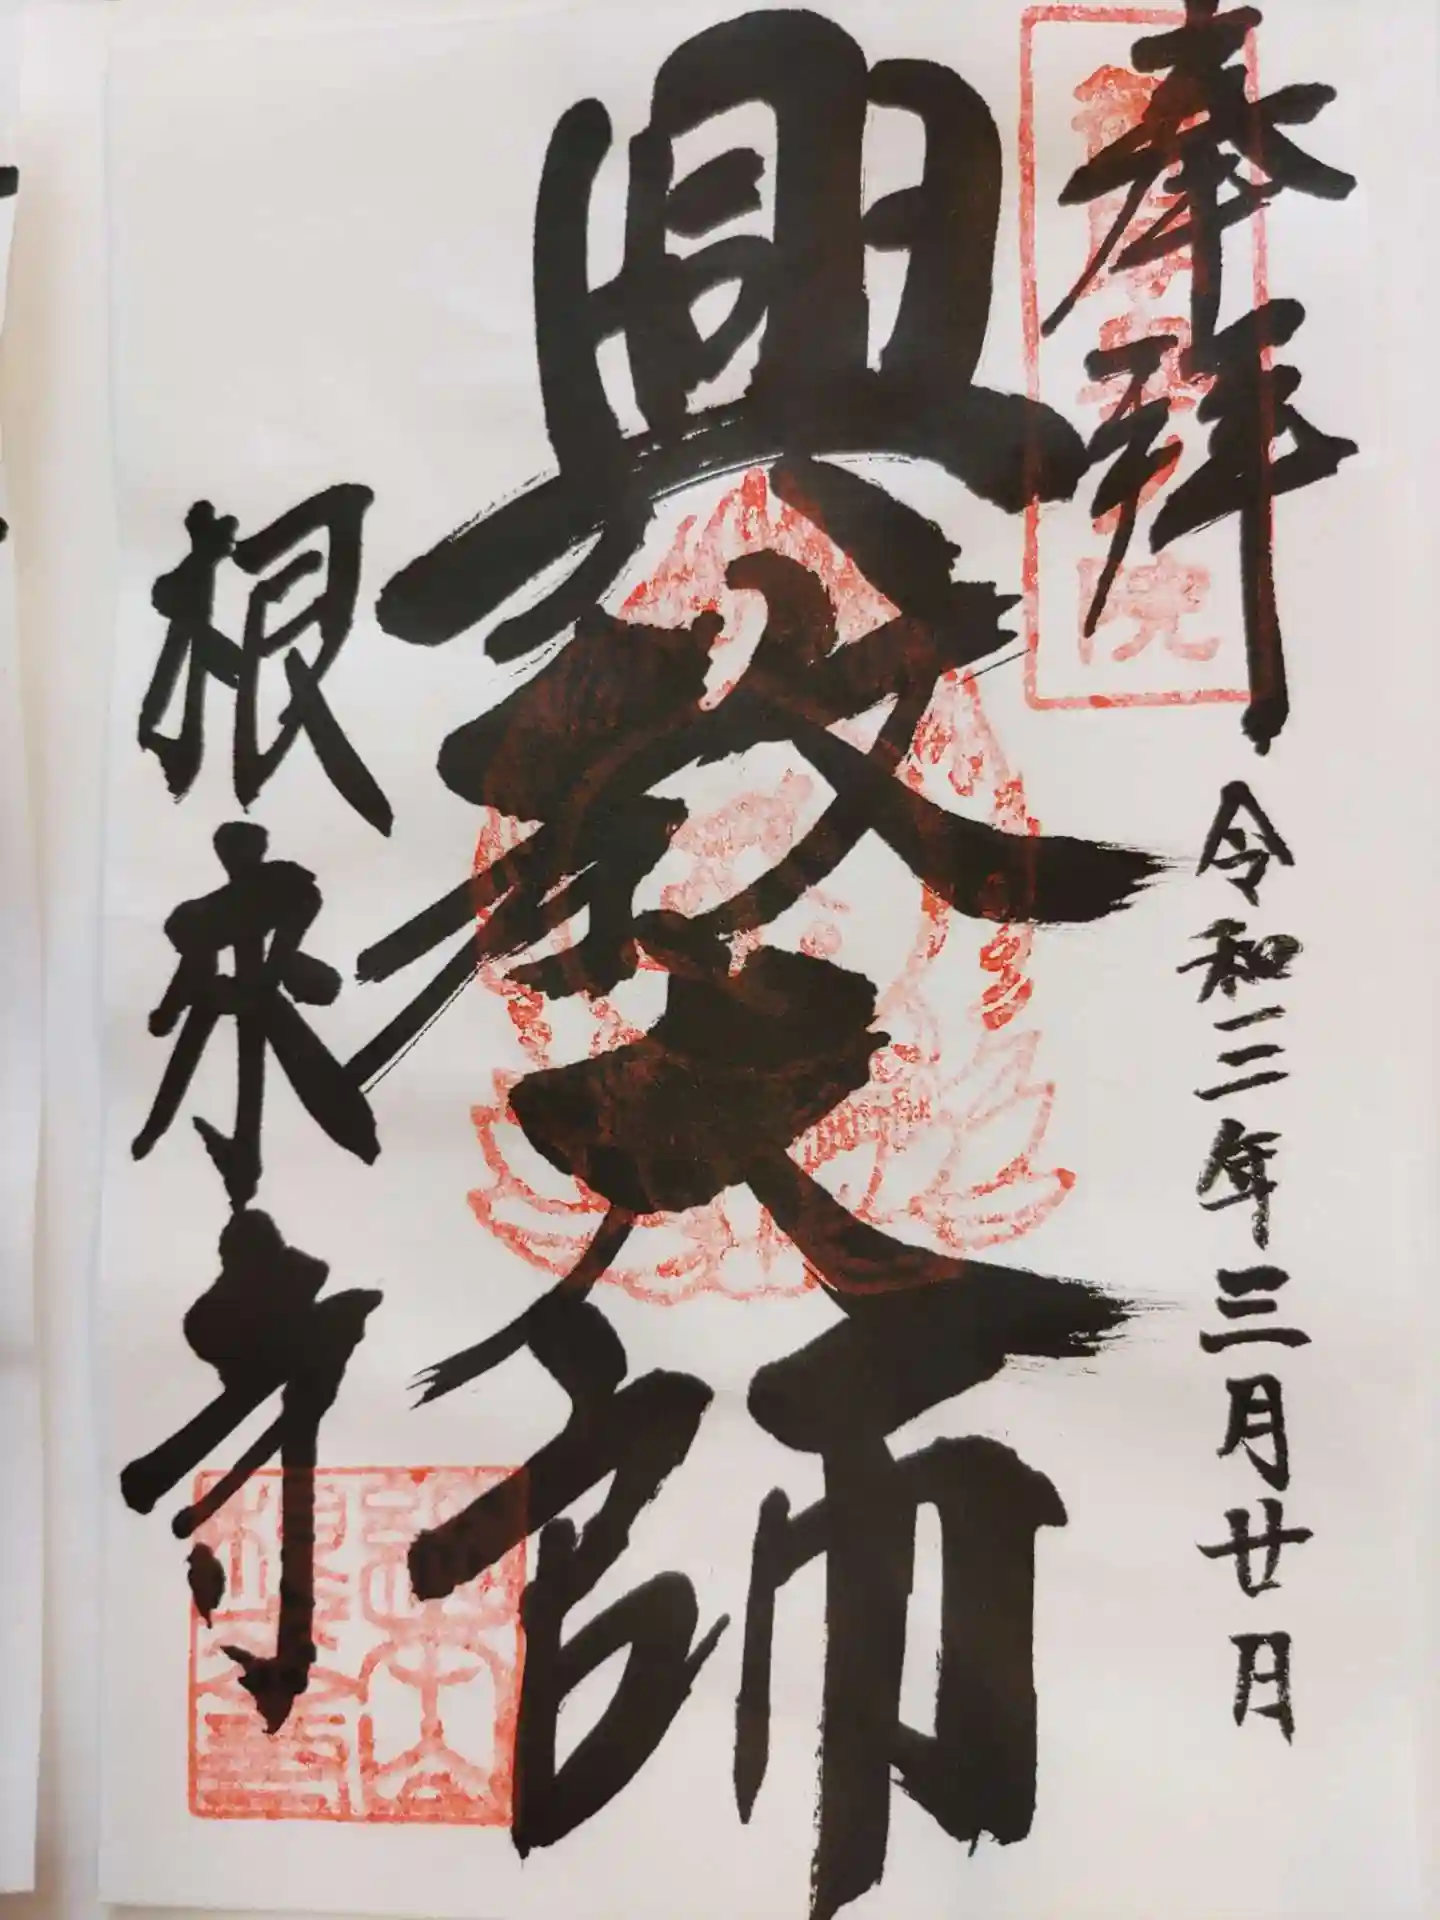 奉拜
令和二年三月廿日
興教大師
根来寺